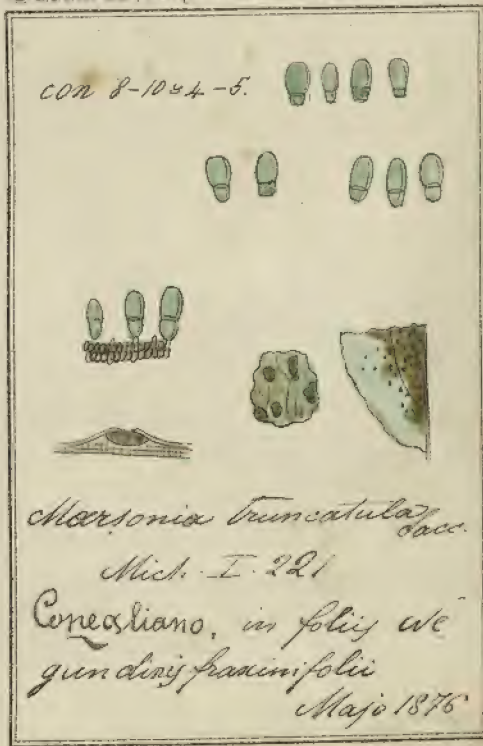 con 8-10 × 4-5.
Marsonia truncatula Sacc.
Mich. I. 221
Conegliano, in foliis Ne
gundinis fraxinifolii
Majo 1876